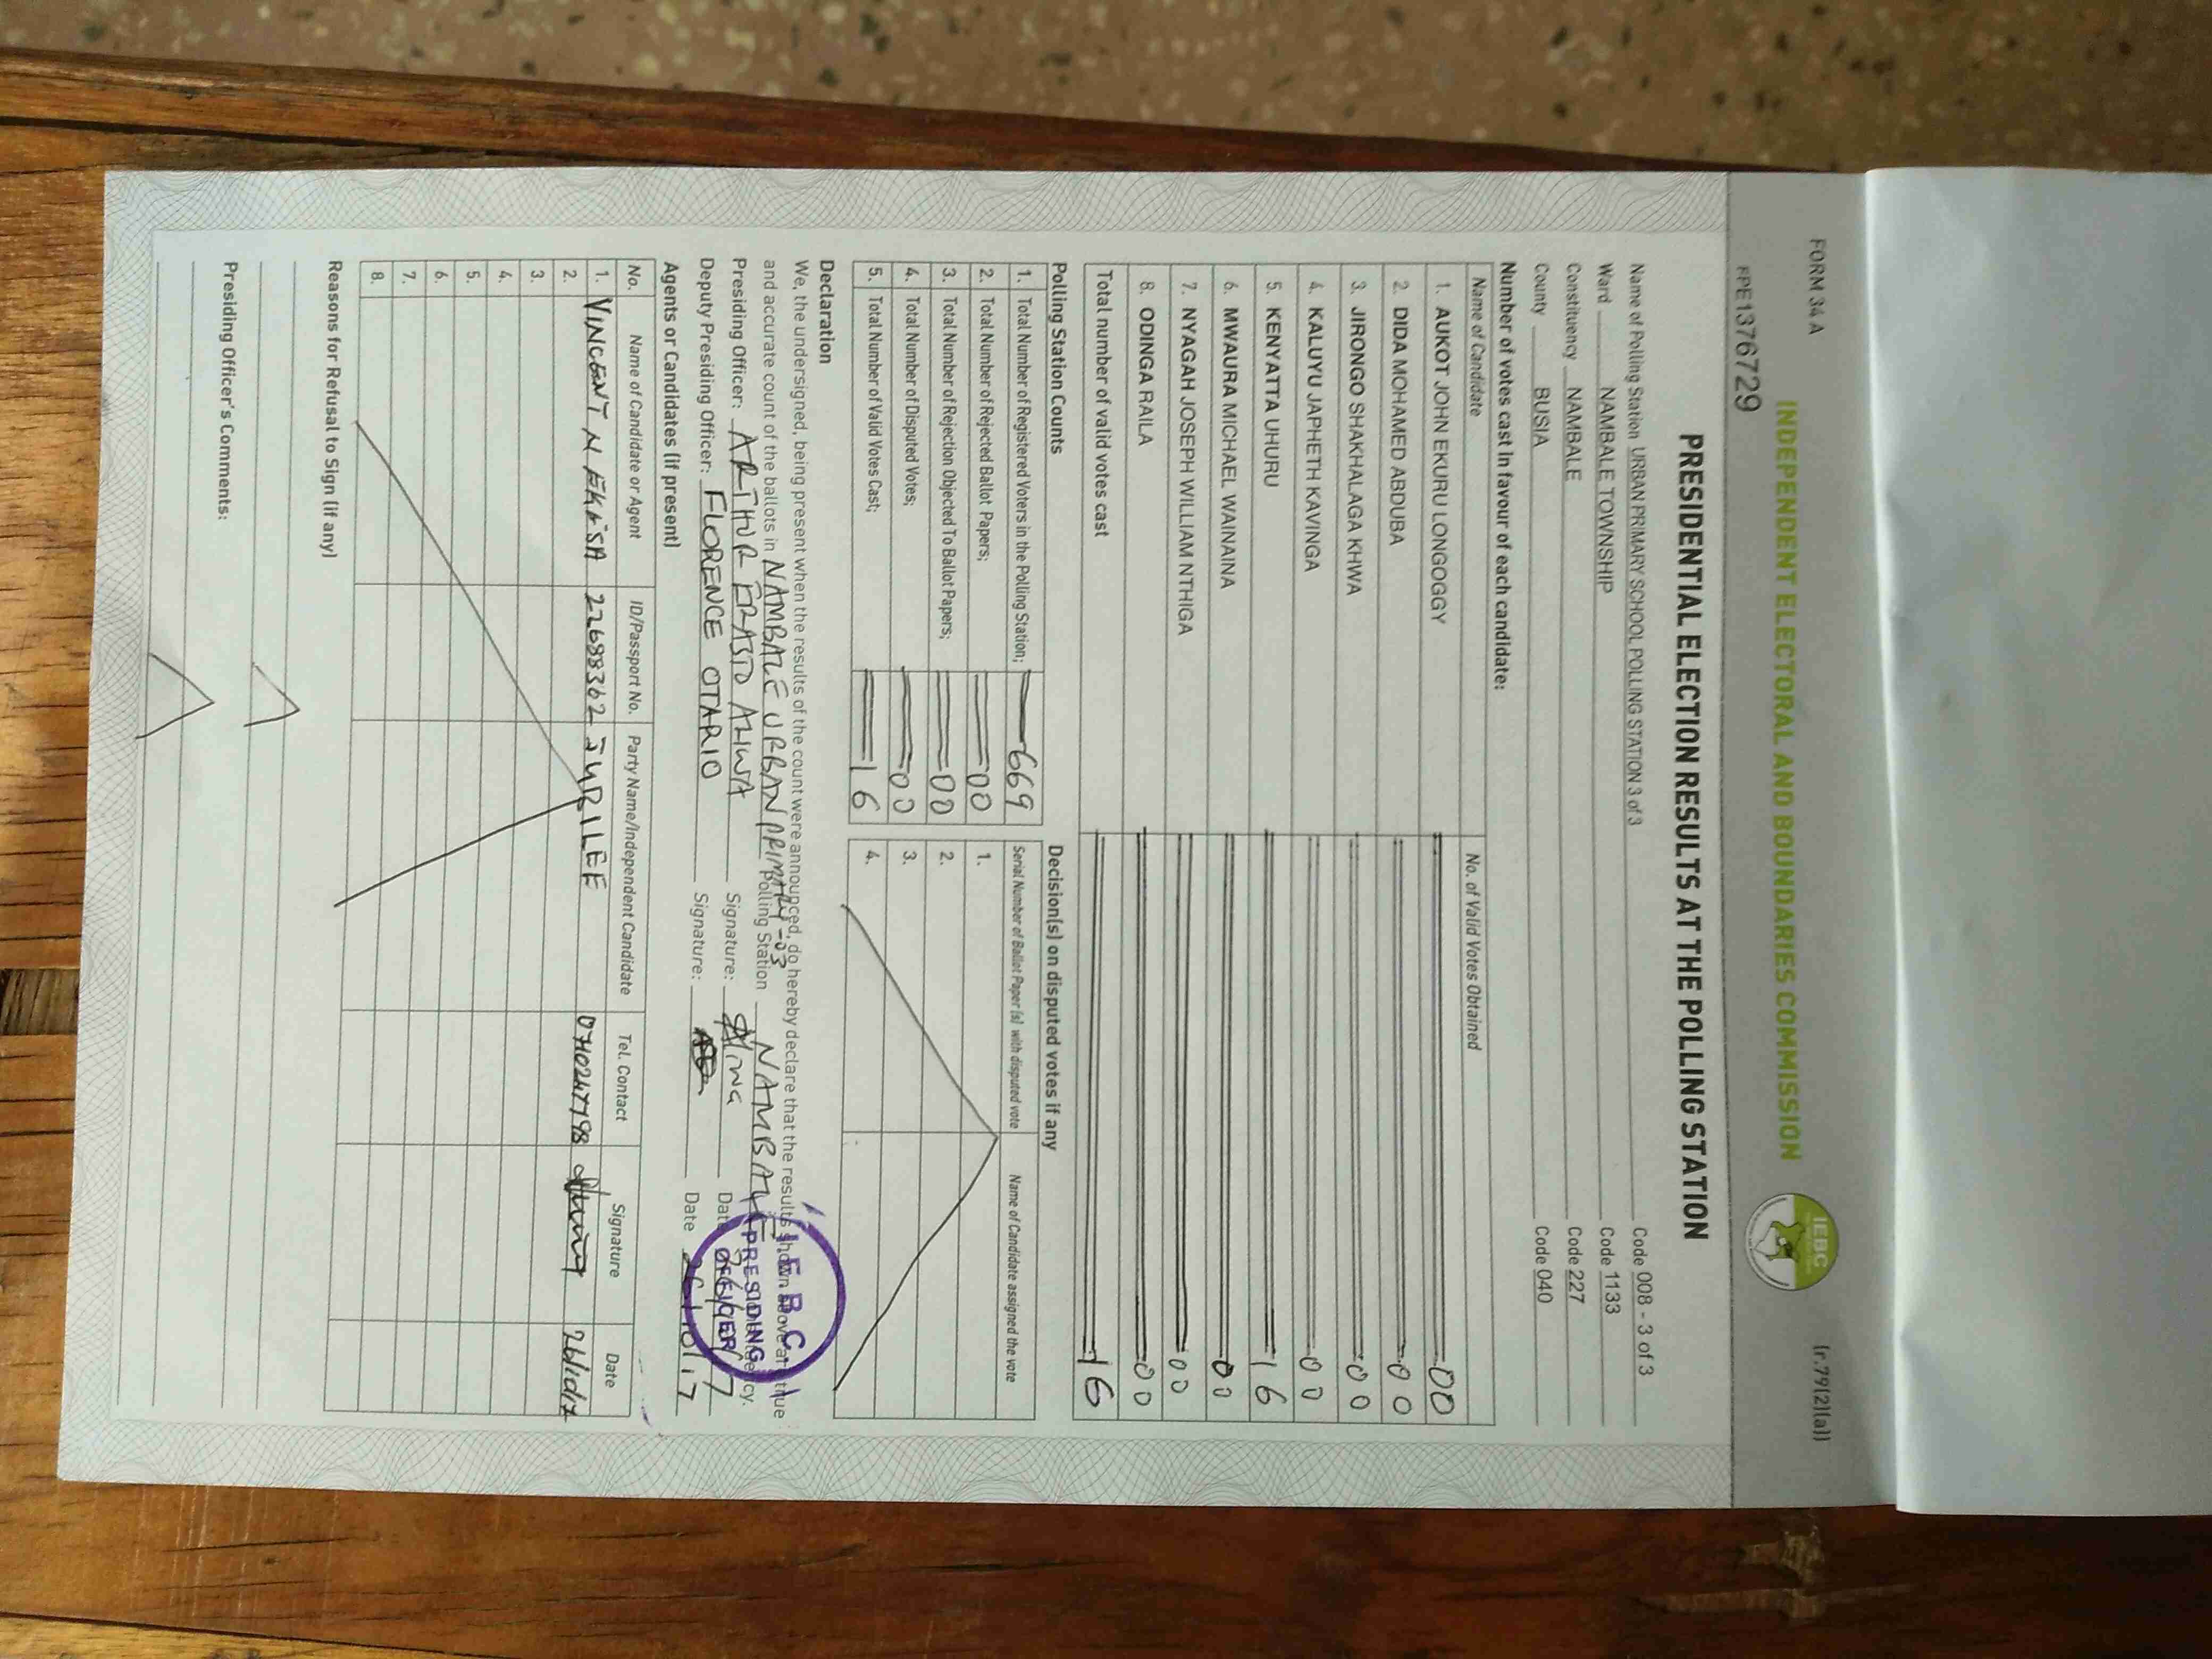 FORM 34 A (r.79(2)(a))
INDEPENDENT ELECTORAL AND BOUNDARIES COMMISSION
IEBC
PE1376729
PRESIDENTIAL ELECTION RESULTS AT THE POLLING STATION
Name of Polling Station URBAN PRIMARY SCHOOL POLLING STATION 3 of 3 Code 008 - 3 of 3
Ward NAMBALE TOWNSHIP Code 1133
Constituency NAMBALE Code 227
County BUSIA Code 040
Number of votes cast in favour of each candidate:
Name of Candidate No. of Valid Votes Obtained
1. AUKOT JOHN EKURU LONGOGGY 00
2. DIDA MOHAMED ABDUBA 00
3. JIRONGO SHAKHALAGA KHWA 00
4. KALUYU JAPHETH KAVINGA 00
5. KENYATTA UHURU 16
6. MWAURA MICHAEL WAINAINA 00
7. NYAGAH JOSEPH WILLIAM NTHIGA 00
8. ODINGA RAILA 00
Total number of valid votes cast 16
Polling Station Counts
1. Total Number of Registered Voters in the Polling Station; 669
2. Total Number of Rejected Ballot Papers; 00
3. Total Number of Rejection Objected To Ballot Papers; 00
4. Total Number of Disputed Votes; 00
5. Total Number of Valid Votes Cast; 16
Decision(s) on disputed votes if any
Serial Number of Ballot Paper (s) with disputed vote Name of Candidate assigned the vote
1.
2.
3.
4.
Declaration
We, the undersigned, being present when the results of the count were announced, do hereby declare that the results shown above are true
and accurate count of the ballots in NAMBALE URBAN PRIMARY -03 Polling Station NAMBALE
Presiding Officer: ARTHUR ERASTO Signature: Date
Deputy Presiding Officer: FLORENCE OTARIO Signature: Date 26/10/17
IEBC
PRESIDING
OFFICER
Agents or Candidates (if present)
No. Name of Candidate or Agent ID/Passport No. Party Name/Independent Candidate Tel. Contact Signature Date
1. VINCENT N 22688362 JUBILEE 0710247798
2.
3.
4.
5.
6.
7.
8.
Reasons for Refusal to Sign (if any)
Presiding Officer's Comments: